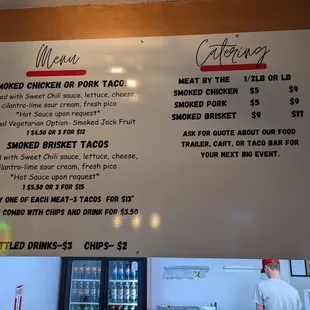 Menu
SMOKED CHICKEN OR PORK TACOS
with Sweet Chili sauce, lettuce, cheese,
cilantro-lime sour cream, fresh pico
*Hot Sauce upon request*
Vegetarian Option- Smoked Jack Fruit
1 $4.50 OR 3 FOR $12
SMOKED BRISKET TACOS
with Sweet Chili sauce, lettuce, cheese,
cilantro-lime sour cream, fresh pico
*Hot Sauce upon request*
1 $5.50 OR 3 FOR $15
ONE OF EACH MEAT-3 TACOS FOR $13*
COMBO WITH CHIPS AND DRINK FOR $3.50
BOTTLED DRINKS-$3 CHIPS- $2
Catering
MEAT BY THE 1/2LB OR LB
SMOKED CHICKEN $5 $9
SMOKED PORK $5 $9
SMOKED BRISKET $9 $17
ASK FOR QUOTE ABOUT OUR FOOD
TRAILER, CART, OR TACO BAR FOR
YOUR NEXT BIG EVENT.